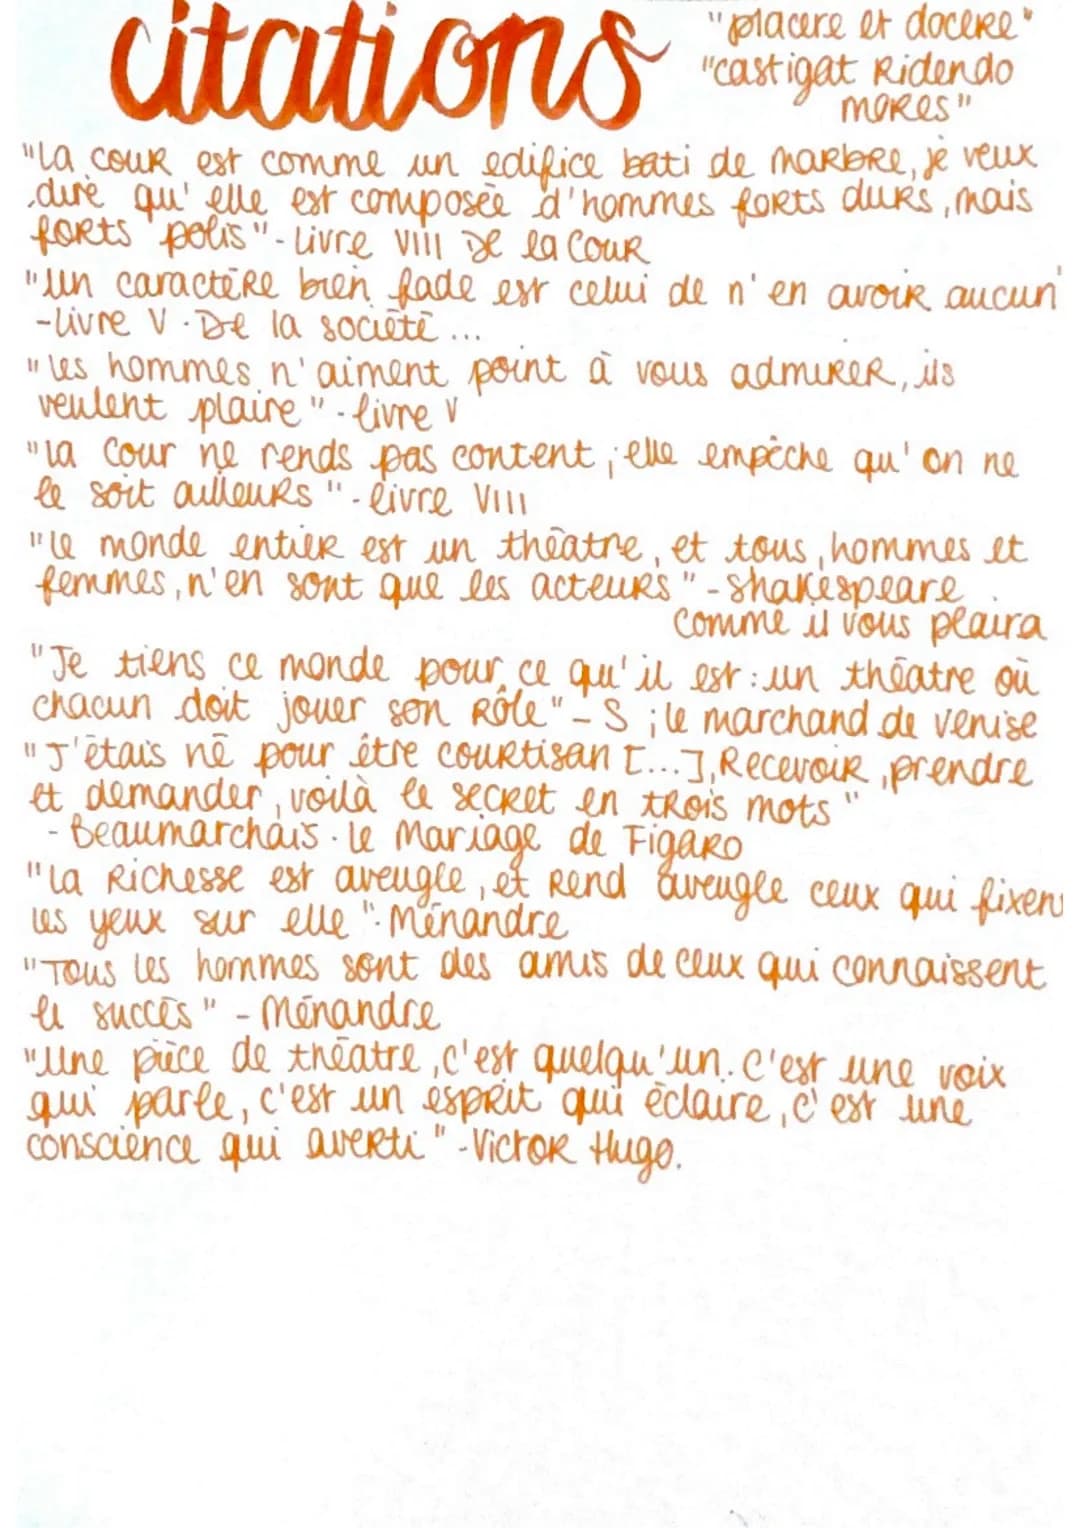 citations
"placere et docere"
"castigat Ridendo
mores"
"La cour est comme un edifice bati de marbre, je veux
dire qu'elle est composée d'hommes forts durs, mais
forts polis" - Livre VIII De la Cour
"Un caractère bien fade est celui de n'en avoir aucun"
- Livre V. De la société...
"Les hommes n'aiment point à vous admirer, ils
veulent plaire" - livre V
"La Cour ne rends pas content ; elle empêche qu'on ne
le soit ailleurs" - livre VIII
"Le monde entier est un théatre, et tous, hommes et
femmes, n'en sont que les acteurs" - Shakespeare
Comme il vous plaira
"Je tiens ce monde pour ce qu'il est : un théâtre où
chacun doit jouer son Rôle" - S ; le marchand de venise
"J'étais né pour être courtisan [...], Recevoir, prendre
et demander, voilà le secret en trois mots"
- Beaumarchais. le Mariage de Figaro
"La Richesse est aveugle, et Rend aveugle ceux qui fixen
les yeux sur elle". Ménandre
"Tous les hommes sont des amis de ceux qui connaissent
le succès" - Ménandre
"Une pièce de théatre, c'est quelqu'un. C'est une voix
qui parle, c'est un esprit qui éclaire, c'est une
conscience qui averti" - Victor Hugo.